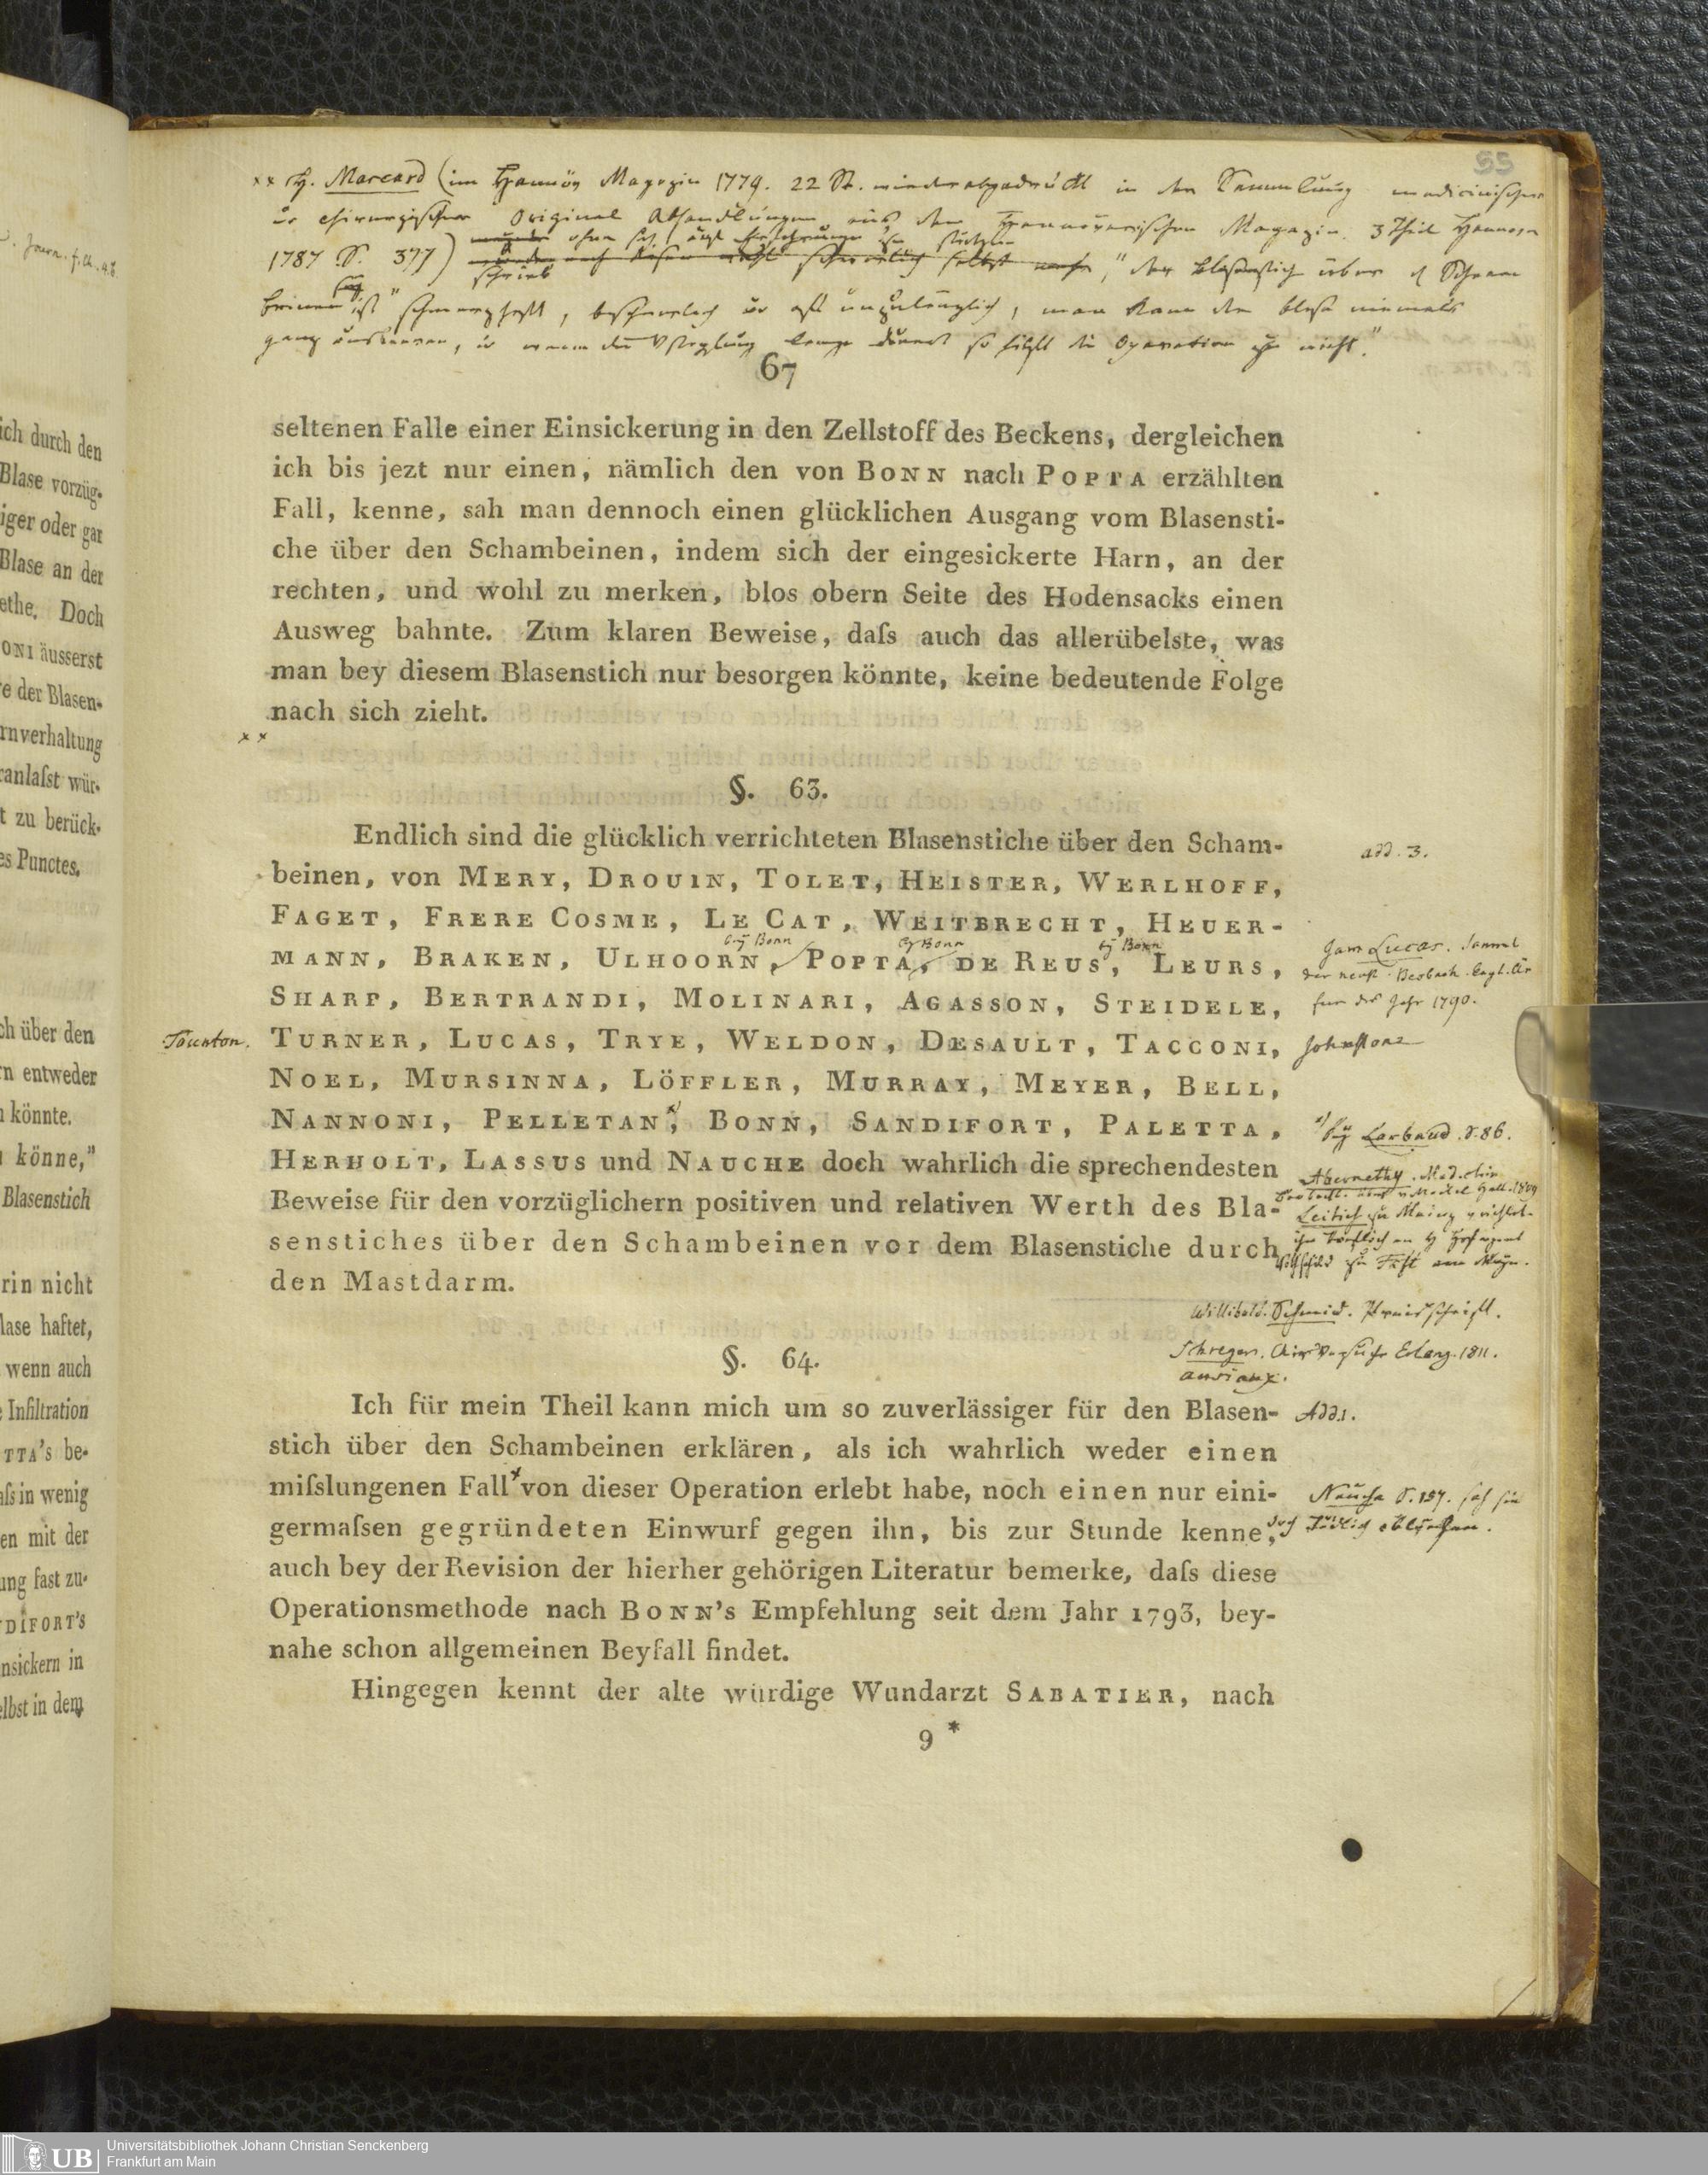 55
×× H. Marcard (im Hannöv Magazin 1779. 22 St. wiederabgedruckt in der Sammlung medicinischer
u chirurgischer Original Abhandlungen aus dem Hannöverischen Magazin. 3 Theil Hannover
1787 S. 377) schrieb "der Blasenstich über d Scham
beinen ist" schmerzhaft, u oft unzulänglich, man kann die Blase niemals
ganz ausleeren, u wenn die lange dauert so hilft die Operation nicht."
67
seltenen Falle einer Einsickerung in den Zellstoff des Beckens, dergleichen
ich bis jezt nur einen, nämlich den von BONN nach POPTA erzählten
Fall, kenne, sah man dennoch einen glücklichen Ausgang vom Blasensti-
che über den Schambeinen, indem sich der eingesickerte Harn, an der
rechten, und wohl zu merken, blos obern Seite des Hodensacks einen
Ausweg bahnte. Zum klaren Beweise, daſs auch das allerübelste, was
man bey diesem Blasenstich nur besorgen könnte, keine bedeutende Folge
nach sich zieht.
××
§. 63.
Endlich sind die glücklich verrichteten Blasenstiche über den Scham-
add. 3.
beinen, von MERY, DROUIN, TOLET, HEISTER, WERLHOFF,
FAGET, FRERE COSME, LE CAT, WEITBRECHT, HEUER-
bey Bonn bey Bonn bey Bonn
MANN, BRAKEN, ULHOORN, POPTA, DE REUS, LEURS,
Lucas. Samml
der neust. Beobach. Engl. Är
für das Jahr 1790.
SHARP, BERTRANDI, MOLINARI, AGASSON, STEIDELE,
Taunton.
TURNER, LUCAS, TRYE, WELDON, DESAULT, TACCONI,
Johnstone
NOEL, MURSINNA, LÖFFLER, MURRAY, MEYER, BELL,
NANNONI, PELLETAN, BONN, SANDIFORT, PALETTA,
bey Larbaud. S. 86.
HERHOLT, LASSUS und NAUCHE doch wahrlich die sprechendesten
Abernethy. Med. chir
Beobacht. v Meckel Hall. 1809
Beweise für den vorzüglichern positiven und relativen Werth des Bla-
Leitich zu Mainz
senstiches über den Schambeinen vor dem Blasenstiche durch
den Mastdarm.
Willibald. Schmid. Preisschrift.
Schreger. Chir Versuche Erlang. 1811.
ansiaux.
§. 64.
Ich für mein Theil kann mich um so zuverlässiger für den Blasen-
Add. 1.
stich über den Schambeinen erklären, als ich wahrlich weder einen
miſslungenen Fall von dieser Operation erlebt habe, noch einen nur eini-
Nauche S. 157. sah sie
germaſsen gegründeten Einwurf gegen ihn, bis zur Stunde kenne,
doch tödlich ablaufen.
auch bey der Revision der hierher gehörigen Literatur bemerke, daſs diese
Operationsmethode nach BONN's Empfehlung seit dem Jahr 1793, bey-
nahe schon allgemeinen Beyfall findet.
Hingegen kennt der alte würdige Wundarzt SABATIER, nach
9 *
ich durch den
Blase vorzüg-
iger oder gar
Blase an der
ethe. Doch
ONI äusserst
e der Blasen-
rnverhaltung
ranlaſst wür-
t zu berück-
es Punctes.
ch über den
rn entweder
n könnte.
n könne,"
Blasenstich
rin nicht
lase haftet,
wenn auch
e Infiltration
TTA's be-
aſs in wenig
en mit der
ung fast zu-
DIFORT's
nsickern in
elbst in dem
UB
Universitätsbibliothek Johann Christian Senckenberg
Frankfurt am Main